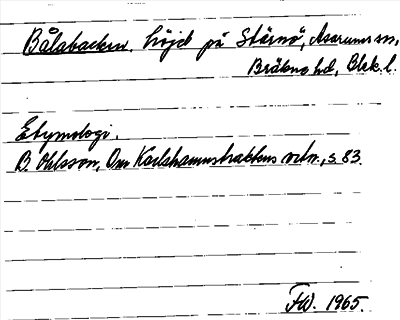 Bålabacken, höjd på Stärnö, Asarums sn,
Bräkne hd, Blek. l.
Etymologi.
B. Ohlsson, Om Karlshamnstraktens ortn., s 83.
FW. 1965.